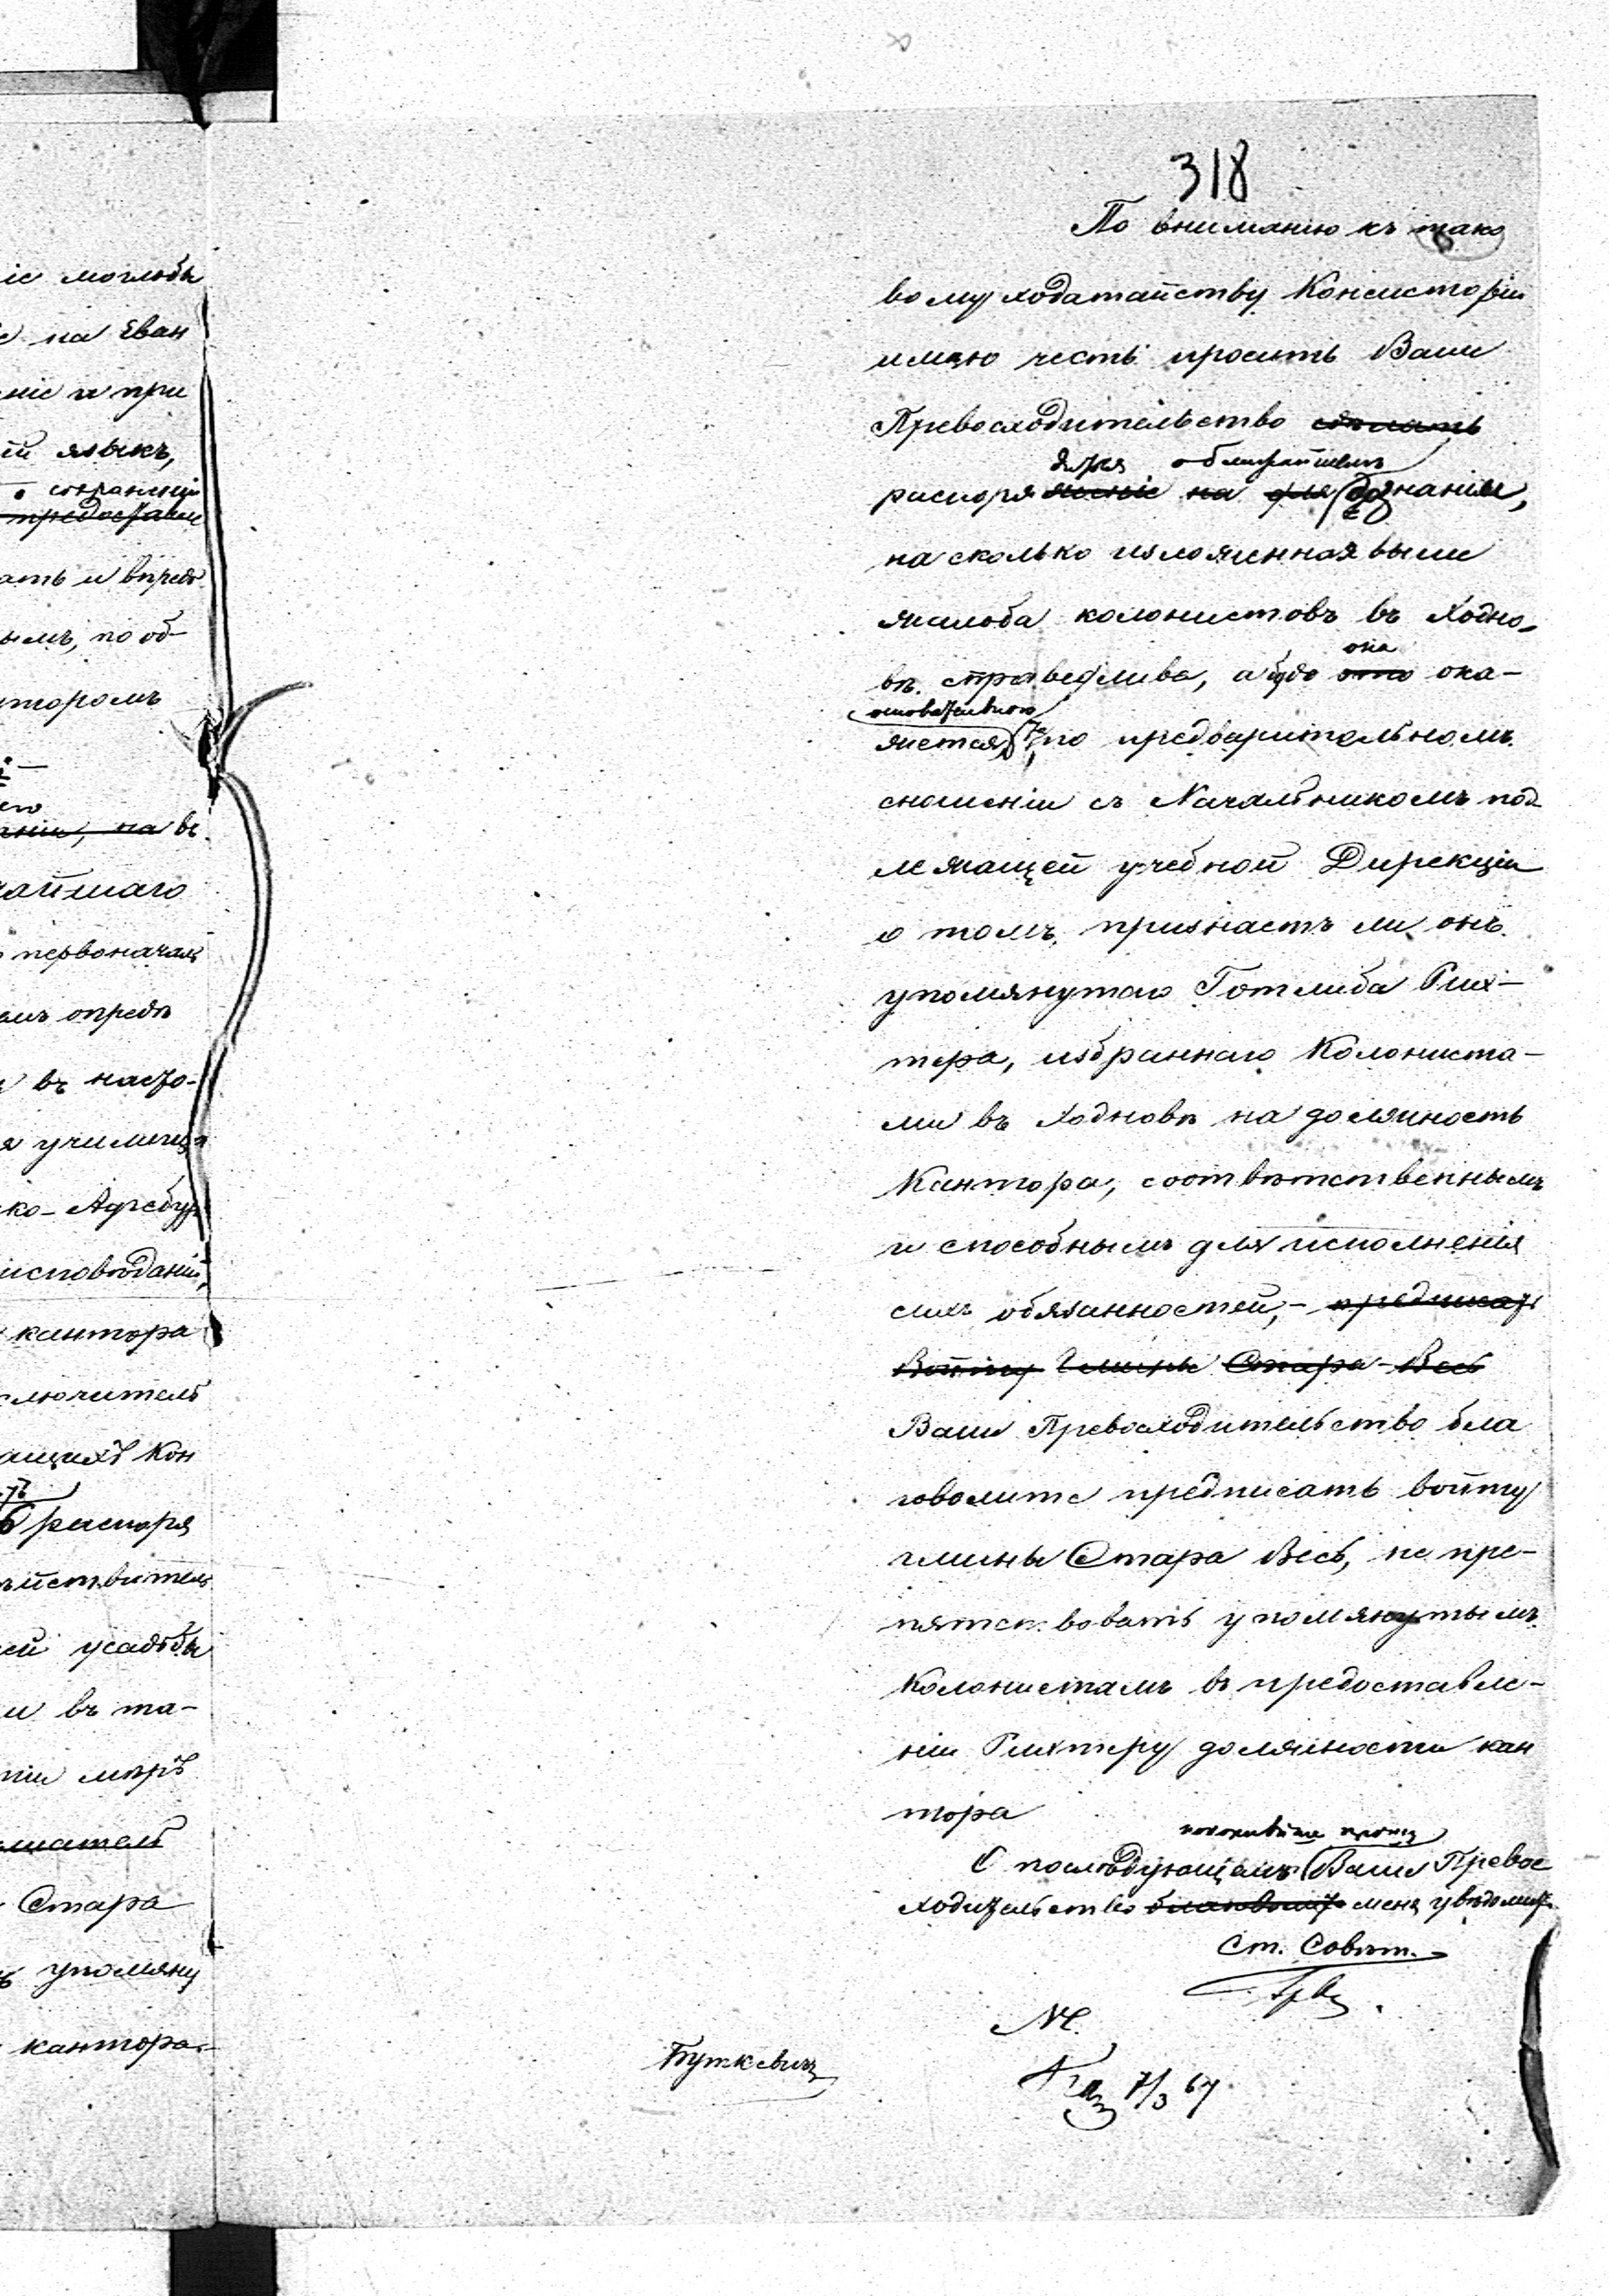 іе моглобы
на Еван
ніе и при
ій языкъ,
сохраненіи
предостави
ать и впредь
ымъ, по об-
нторомъ
его
ніи, на въ
чайшаго
первоначаль
амъ опредѣ
въ насто-
я училища
ко-Аугсбур
исповѣданій,
кантора
ключитель
ащихъ Кон
распоря
ѣйствитель
ей усадьбы
и въ та-
ніи мѣръ
Стара
упомяну
кантора
318
По вниманію къ тако
вому ходатайству Консисторіи
имѣю честь просить Ваше
Превосходительство сдѣлать
дится о ближайшемъ
распоряженіе на для дознаніи,
на сколько изложенная выше
жалоба колонистовъ въ Ходно-
она
вѣ справедлива, а буде это ока-
основательною
жется, то по предварительномъ
сношеніи съ Начальникомъ под
лежащей учебной Дирекціи
о томъ, признаетъ ли онъ
упомянутаго Готлиба Рих-
тера, избраннаго Колониста-
ми въ Ходновѣ на должность
Кантора, соотвѣтственнымъ
и способнымъ для исполненія
сихъ обязанностей,- предписать
Войту Гмины Стара-Весь
Ваше Превосходительство бла
говолите предписать войту
гмины Стара Весь, не пре-
пятствовать упомянутымъ
Колонистамъ въ предоставле-
ніи Рихтеру должности кан
тора
покорнѣйше прошу
О послѣдующемъ Ваше Превос
ходительство благоволите меня увѣдомить
Ст. Совѣт.
Н.
Буткевичъ
7/3 67